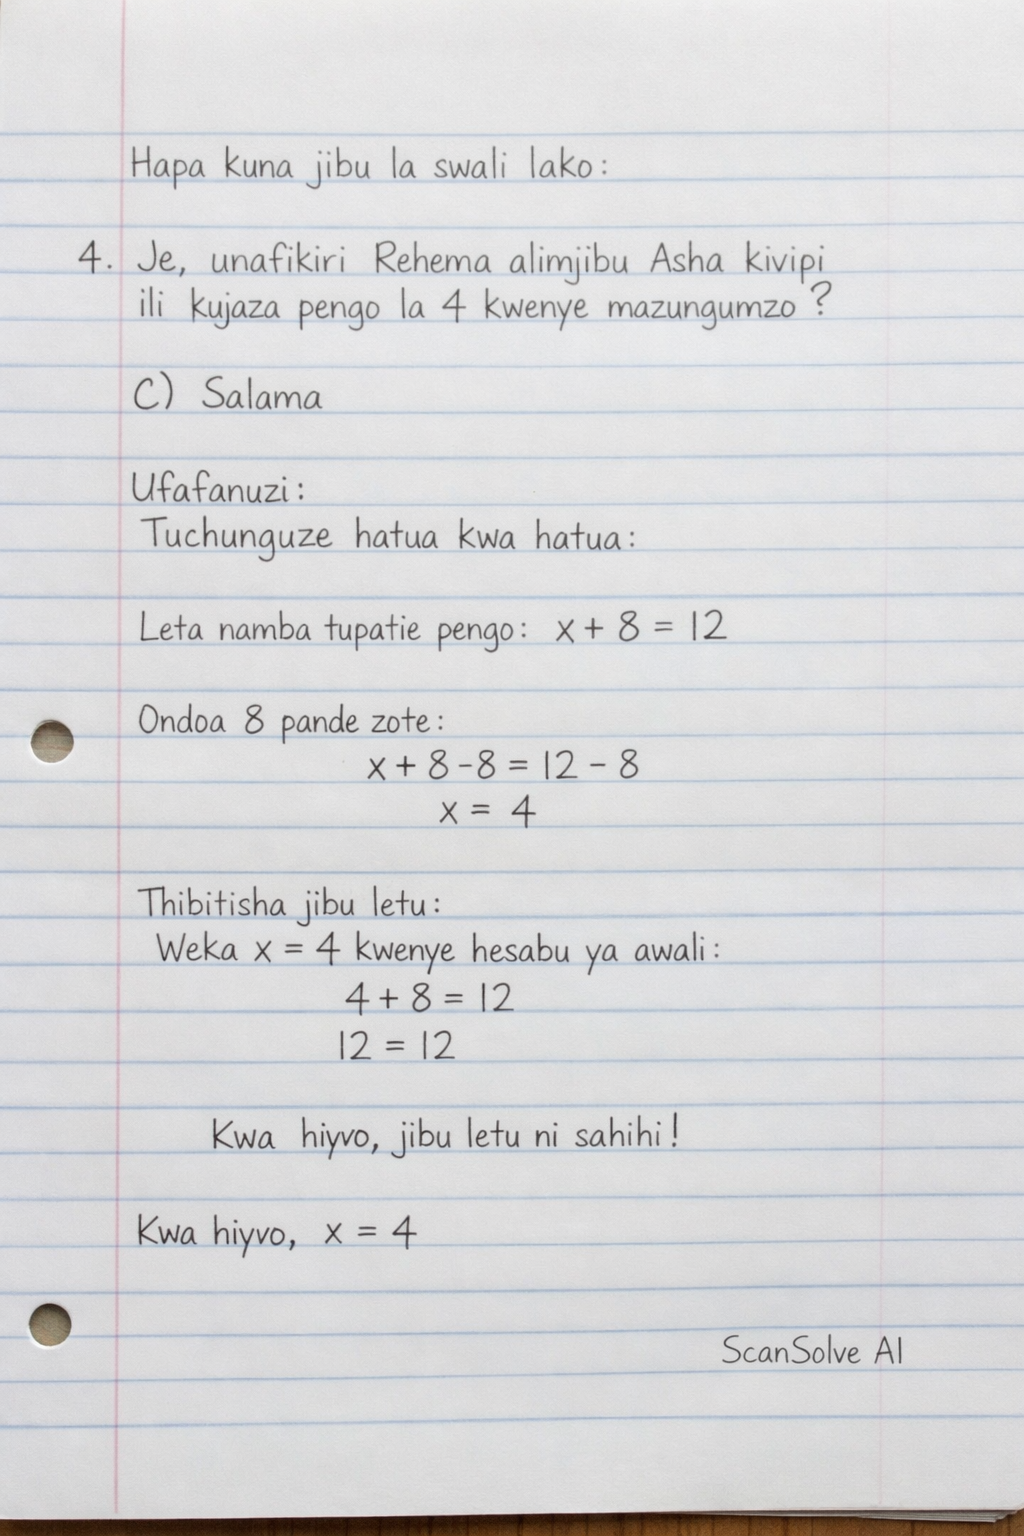 Hapa kuna jibu la swali lako:
4. Je, unafikiri Rehema alimjibu Asha kivipi
ili kujaza pengo la 4 kwenye mazungumzo?
C) Salama
Ufafanuzi:
Tuchunguze hatua kwa hatua:
Leta namba tupatie pengo: x + 8 = 12
Ondoa 8 pande zote:
x + 8 - 8 = 12 - 8
x = 4
Thibitisha jibu letu:
Weka x = 4 kwenye hesabu ya awali:
4 + 8 = 12
12 = 12
Kwa hiyvo, jibu letu ni sahihi!
Kwa hiyvo, x = 4
ScanSolve AI